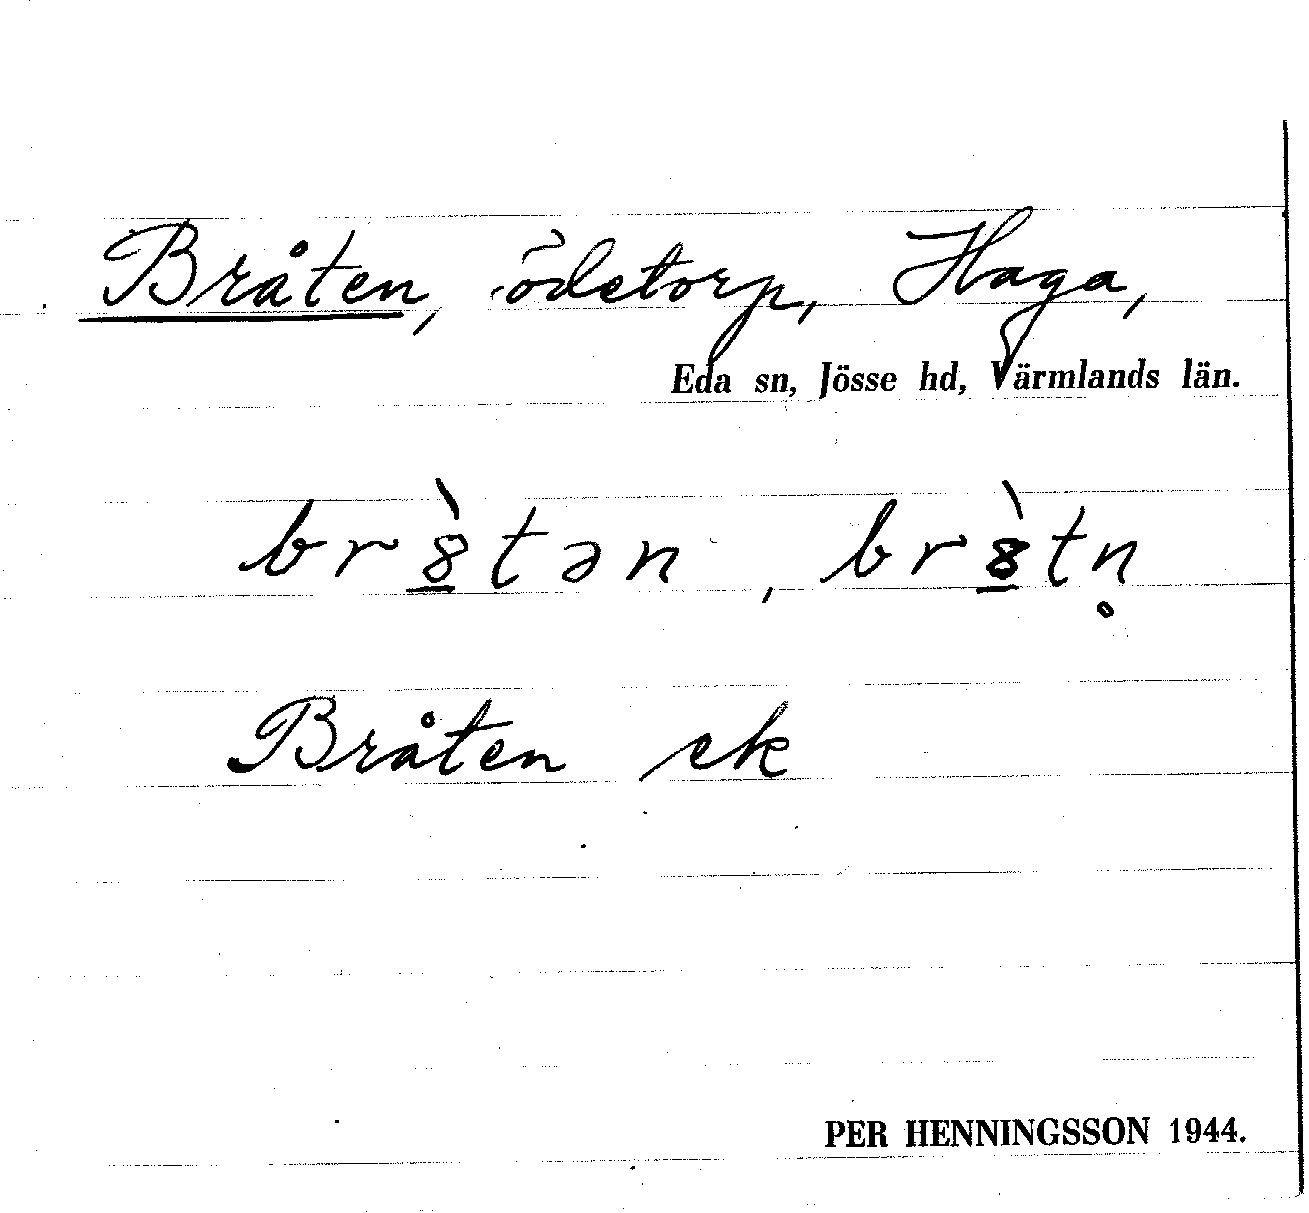 Bråten, ödetorp, Haga,
Eda sn, Jösse hd, Värmlands län.
br8̲̀tən, br8̲̀tn̥
Bråten ek
PER HENNINGSSON 1944.